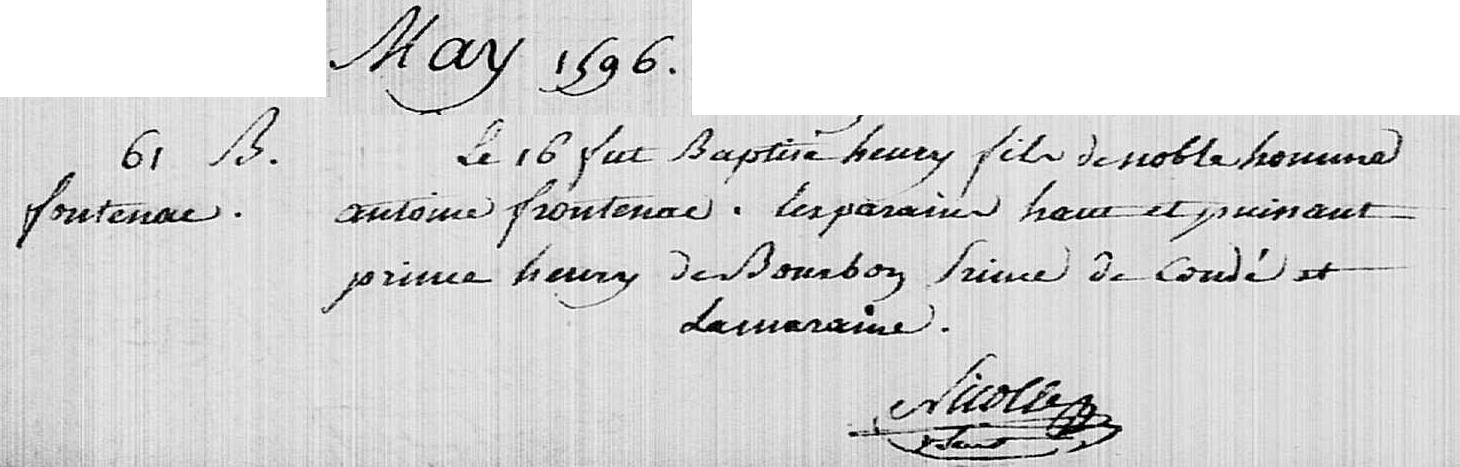 May 1596.
61 B.
fontenac.
Le 16 fut Baptisé henry fils de noble homme
antoine frontenac. les parains haut et puissant
prince henry de Bourbon Prince de Condé et
La maraine.
Nicolle